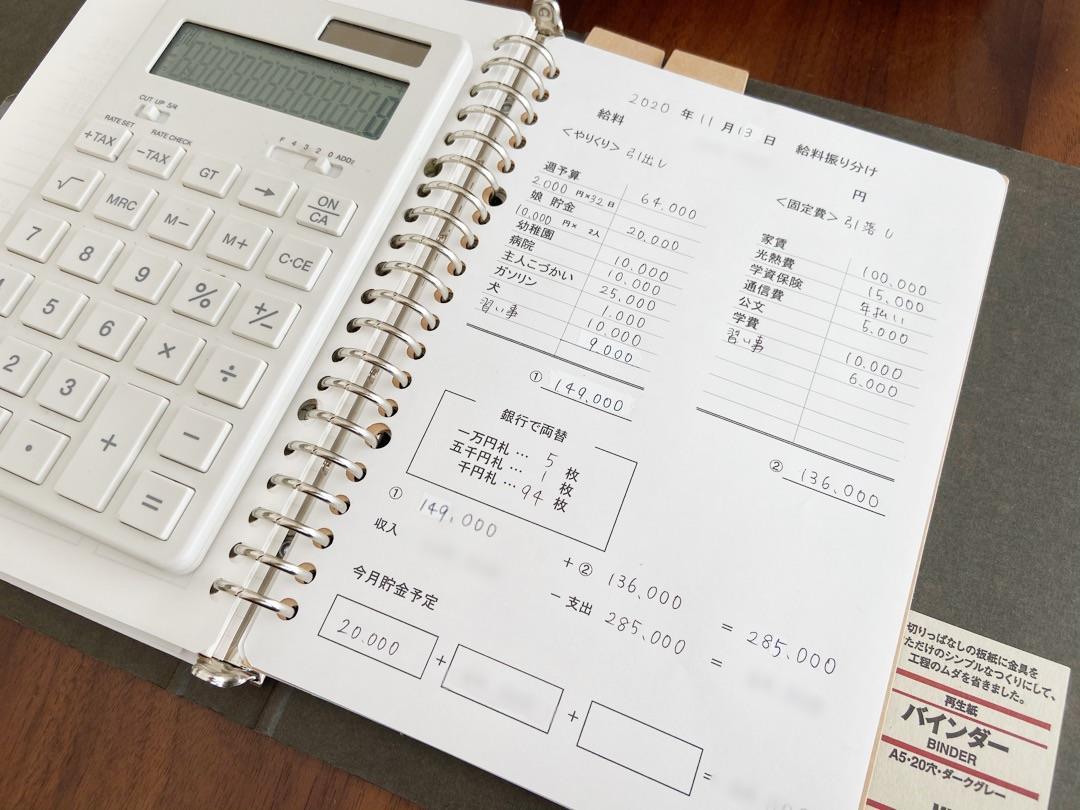 CUT UP 5/4
F 4 3 2 0 ADD2
RATE SET
RATE CHECK
+TAX
-TAX
GT
→
ON
CA
√
MRC
M-
M+
C・CE
7
8
9
%
+/-
5
6
×
÷
2
3
+
-
・
=
2020 年 11 月 13 日 給料振り分け
給料
円
<やりくり> 引出し
週予算 64.000
2.000 円×32日
娘 貯金 20.000
10.000 円× 2人
幼稚園 10.000
病院 10.000
主人こづかい 25.000
ガソリン 1.000
犬 10.000
習い事 9.000
① 149,000
<固定費> 引落し
家賃 100,000
光熱費 15,000
学資保険 年払い
通信費 5,000
公文
学費 10,000
習い事 6,000
② 136,000
銀行で両替
一万円札 … 5 枚
五千円札 … 1 枚
千円札 … 94 枚
① 149,000 + ② 136,000 = 285,000
収入 - 支出 285,000 =
今月貯金予定
20.000 + + =
切りっぱなしの板紙に金具を
ただけのシンプルなつくりにして、
工程のムダを省きました。
再生紙
バインダー
BINDER
A5・20穴・ダークグレー